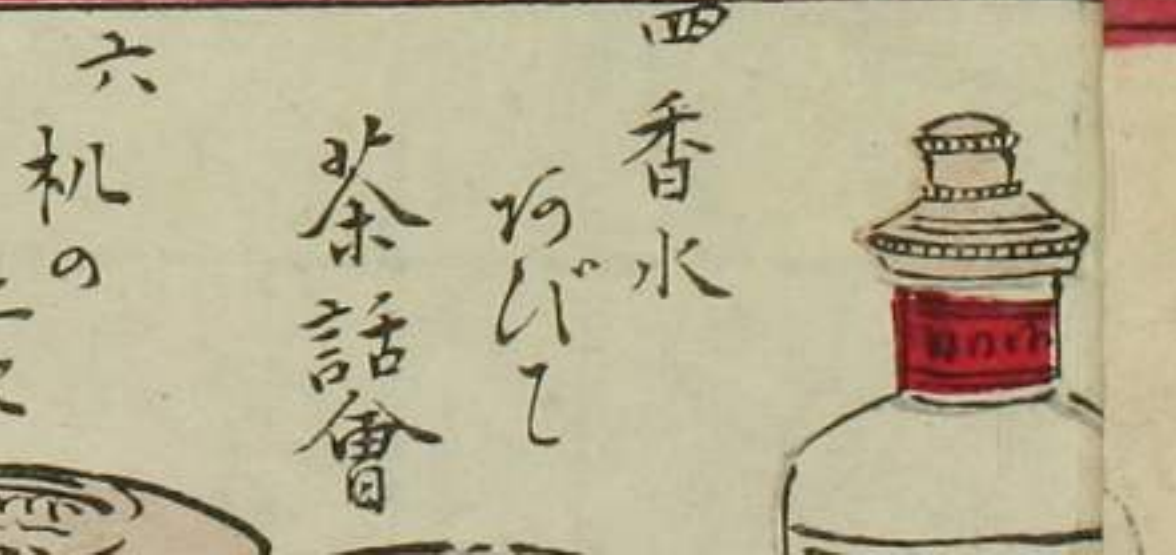 四 香水
あびて
茶話會
六 机の